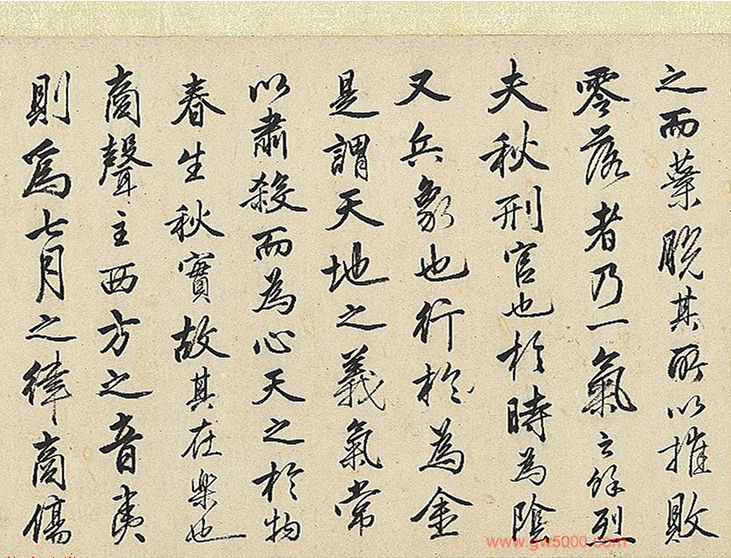 之而葉脫其所以摧敗
零落者乃一氣之餘烈
夫秋刑官也於時為陰
又兵象也行於為金
是謂天地之義氣常
以肅殺而為心天之於物
春生秋實故其在樂也
商聲主西方之音夷
則為七月之律商傷
www.gw5000.com